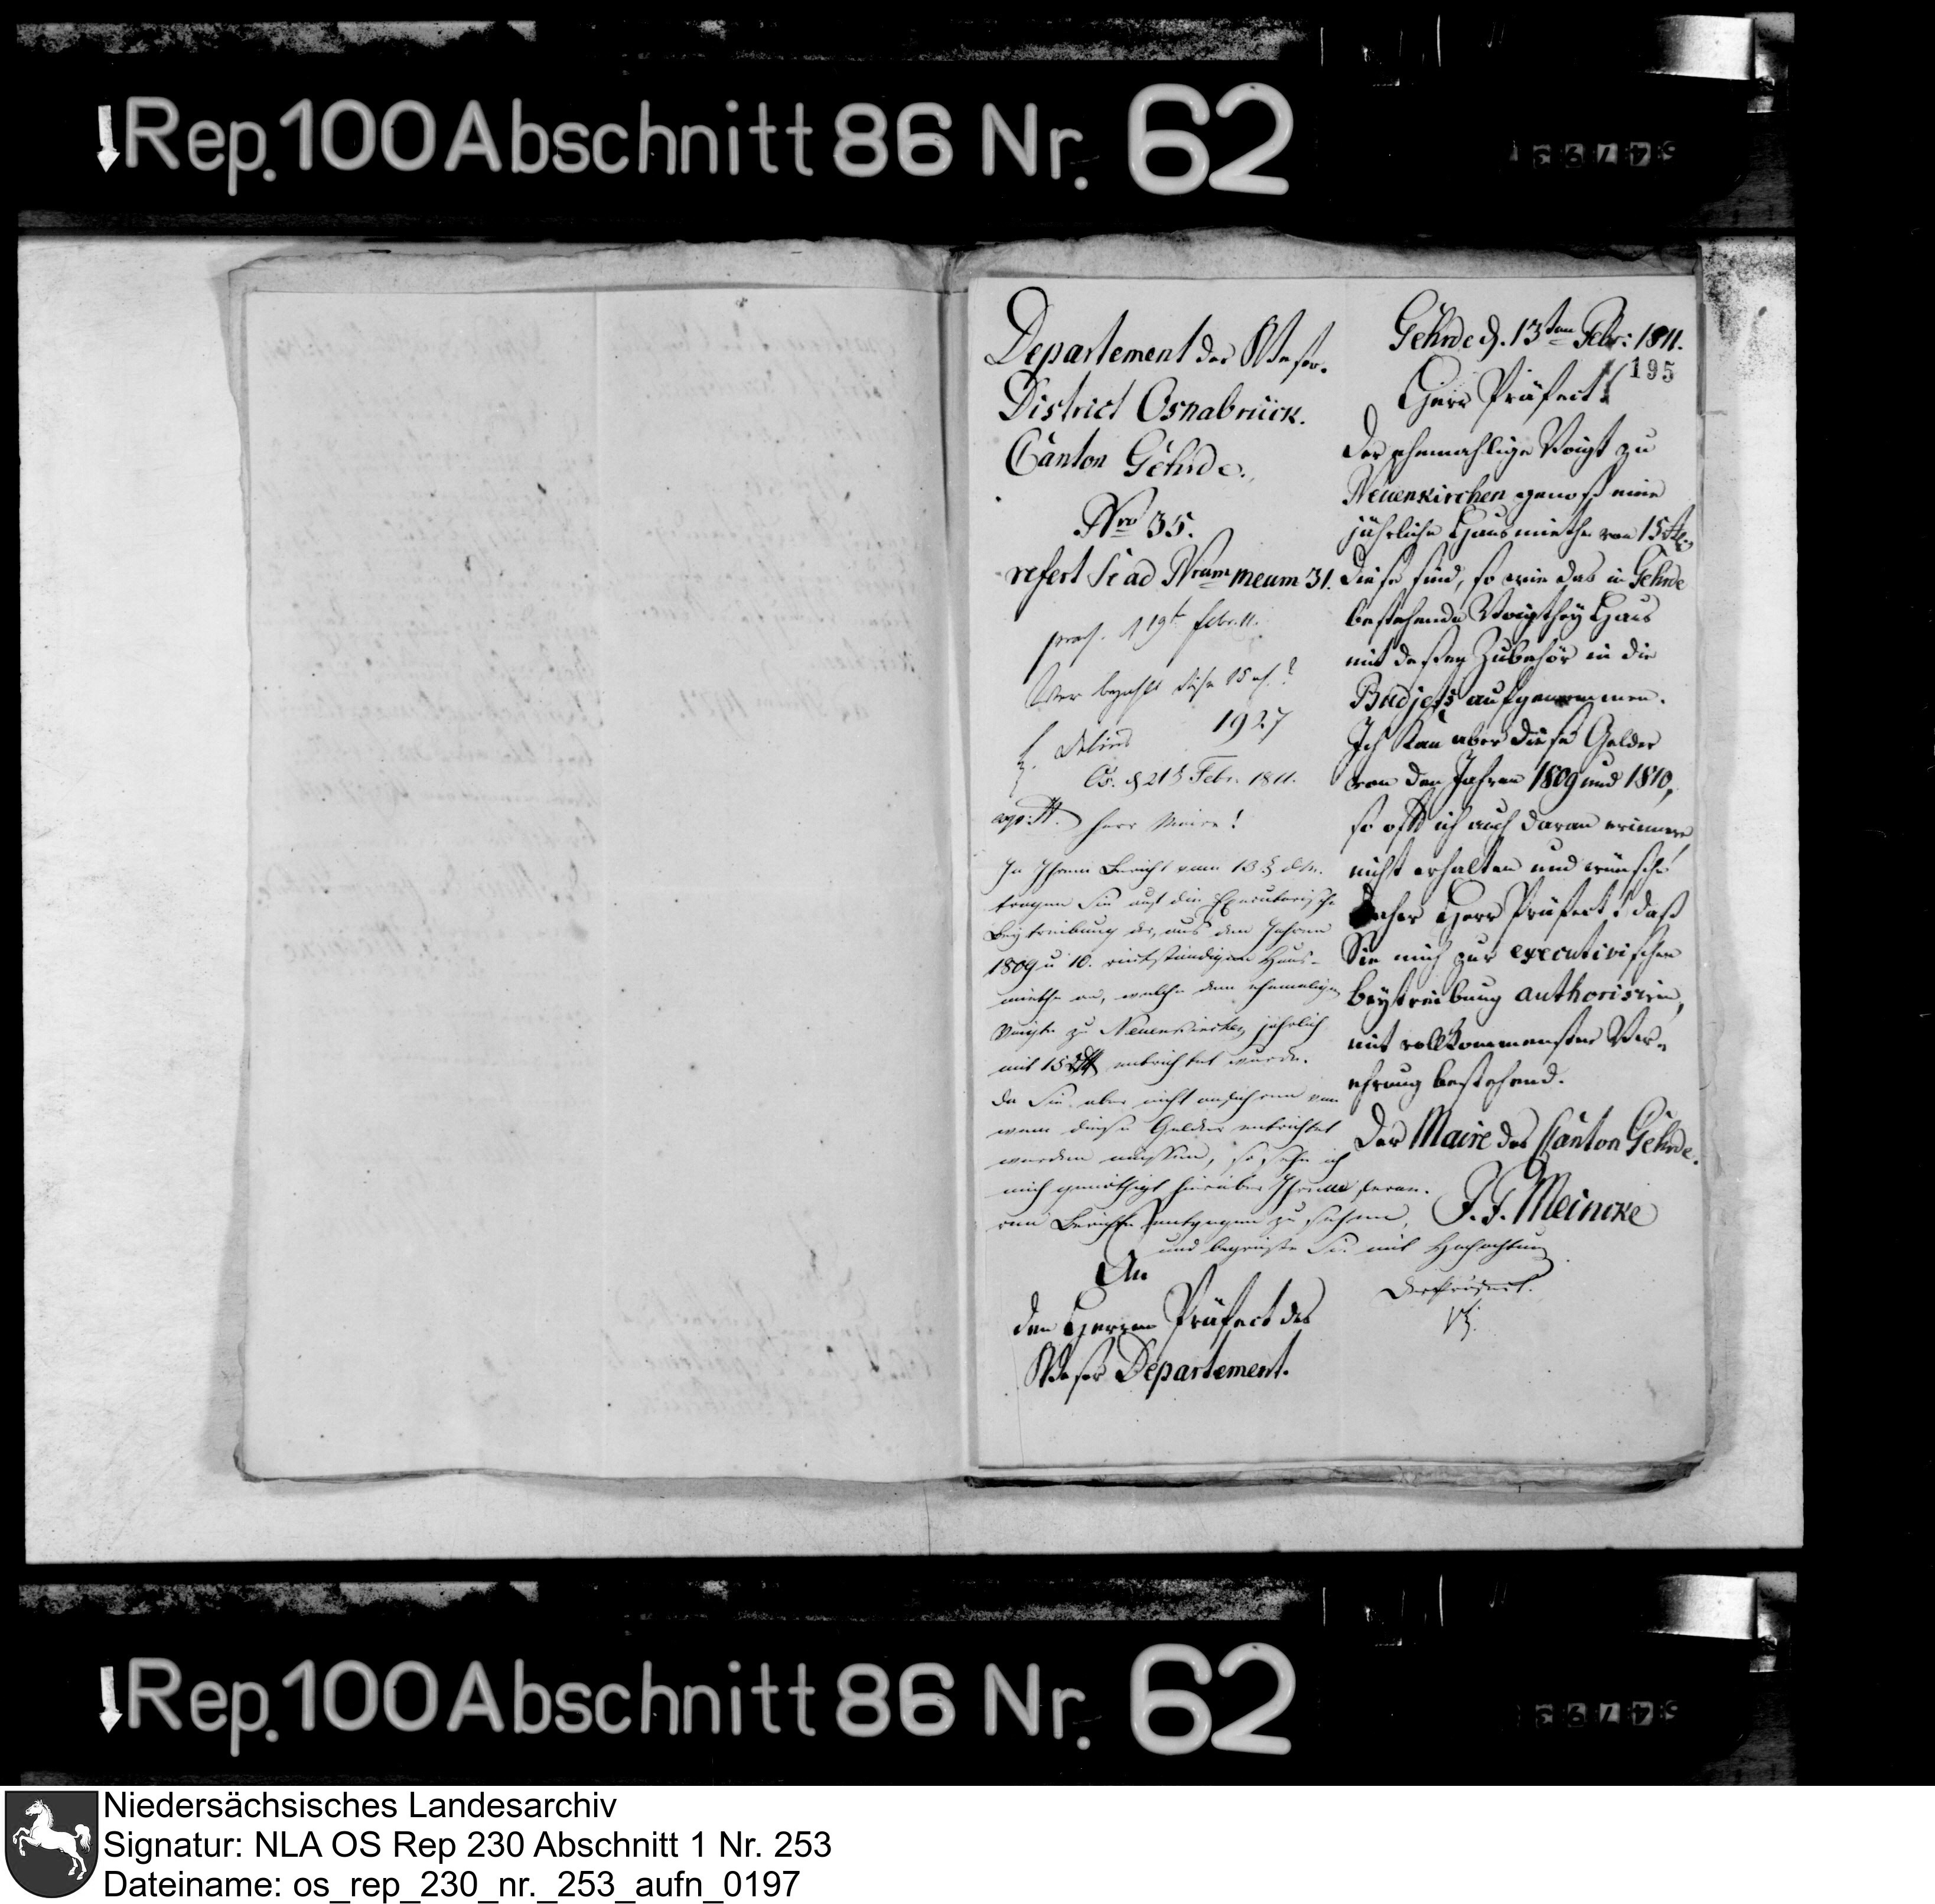 Rep. 100 Abschnitt 86 Nr. 62
Departement der Weser.
District Osnabrück.
Canton Gehrde.
Nro 35.
refert se ad Nrum meum 31.
präs. d 19t febr. 11.
Wer bezahlt diese 15 rh.?
1927
Os. d 21t Febr. 1811.
Herr Maire!
In Ihrem Bericht vom 13t d. M.
tragen Sie auf die Executorische
Beytreibung der, aus den Jahren
1809 u 10. rückständigen Haus-
miethe an, welche dem ehemaligen
Voigte zu Neuenkirchen jährlich
mit 15 entrichtet wurde.
Da Sie aber nicht anführen von
wem diese Gelder entrichtet
werden müssen, so sehe ich
mich genöthigt hierüber Ihrem ferne-
ren Berichte entgegen zu sehen,
und begrüße Sie mit Hochachtung
Der Präfect.
An
den Herren Präfect des
Weser Departement.
Gehrde d. 13ten Febr: 1811.
195
Herr Präfect!
Der ehemahlige Voigt zu
Neuenkirchen genoß eine
jährliche Hausmiethe von 15 rtl.
Diese sind, so wie das in Gehrde
bestehende Voigthey Haus
mit dessen Zubehör in die
Budjets aufgenommen.
Ich kan aber diese Gelder
von den Jahren 1809 und 1810,
so offt ich auch daran erinnere
nicht erhalten und wünsche
daher Herr Präfect! daß
Sie mich zur executivischen
beytreibung authorisiren,
mit vollkommenster Ver-
ehrung bestehend.
Der Maire des Canton Gehrde.
J. F. Meincke
Rep. 100 Abschnitt 86 Nr. 62
Niedersächsisches Landesarchiv
Signatur: NLA OS Rep 230 Abschnitt 1 Nr. 253
Dateiname: os_rep_230_nr._253_aufn_0197